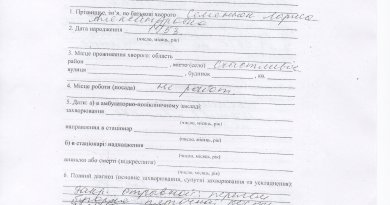 1. Прізвище, ім'я, по батькові хворого Семенюк Лариса
Александровна
2. Дата народження 1963
(число, місяць, рік)
3. Місце проживання хворого: область
район , місто (село) Счастливое
вулиця , будинок , кв.
4. Місце роботи (посада) не работ.
5. Дати: а) в амбулаторно-поліклінічному закладі:
захворювання
(число, місяць, рік)
направлення в стаціонар
(число, місяць, рік)
б) в стаціонарі: надходження
(число, місяць, рік)
виписки або смерті (підкреслити)
(число, місяць, рік)
6. Повний діагноз (основне захворювання, супутні захворювання та ускладнення):
перелом